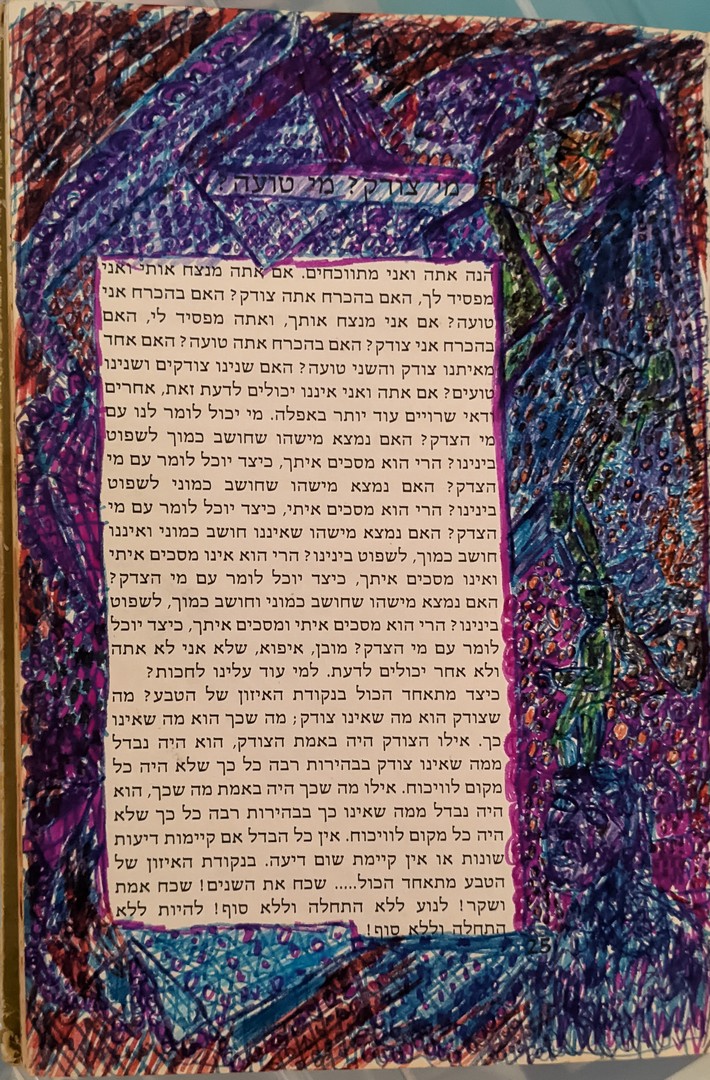 מי צודק? מי טועה?
הנה אתה ואני מתווכחים. אם אתה מנצח אותי ואני
מפסיד לך, האם בהכרח אתה צודק? האם בהכרח אני
טועה? אם אני מנצח אותך, ואתה מפסיד לי, האם
בהכרח אני צודק? האם בהכרח אתה טועה? האם אחד
מאיתנו צודק והשני טועה? האם שנינו צודקים ושנינו
טועים? אם אתה ואני איננו יכולים לדעת זאת, אחרים
ודאי שרויים עוד יותר באפלה. מי יכול לומר לנו עם
מי הצדק? האם נמצא מישהו שחושב כמוך לשפוט
בינינו? הרי הוא מסכים איתך, כיצד יוכל לומר עם מי
הצדק? האם נמצא מישהו שחושב כמוני לשפוט
בינינו? הרי הוא מסכים איתי, כיצד יוכל לומר עם מי
הצדק? האם נמצא מישהו שאיננו חושב כמוני ואיננו
חושב כמוך, לשפוט בינינו? הרי הוא אינו מסכים איתי
ואינו מסכים איתך, כיצד יוכל לומר עם מי הצדק?
האם נמצא מישהו שחושב כמוני וחושב כמוך, לשפוט
בינינו? הרי הוא מסכים איתי ומסכים איתך, כיצד יוכל
לומר עם מי הצדק? מובן, איפוא, שלא אני לא אתה
ולא אחר יכולים לדעת. למי עוד עלינו לחכות?
כיצד מתאחד הכול בנקודת האיזון של הטבע? מה
שצודק הוא מה שאינו צודק; מה שכך הוא מה שאינו
כך. אילו הצודק היה באמת הצודק, הוא היה נבדל
ממה שאינו צודק בבהירות רבה כל כך שלא היה כל
מקום לוויכוח. אילו מה שכך היה באמת מה שכך, הוא
היה נבדל ממה שאינו כך בבהירות רבה כל כך שלא
היה כל מקום לוויכוח. אין כל הבדל אם קיימות דיעות
שונות או אין קיימת שום דיעה. בנקודת האיזון של
הטבע מתאחד הכול..... שכח את השנים! שכח אמת
ושקר! לנוע ללא התחלה וללא סוף! להיות ללא
התחלה וללא סוף!
25